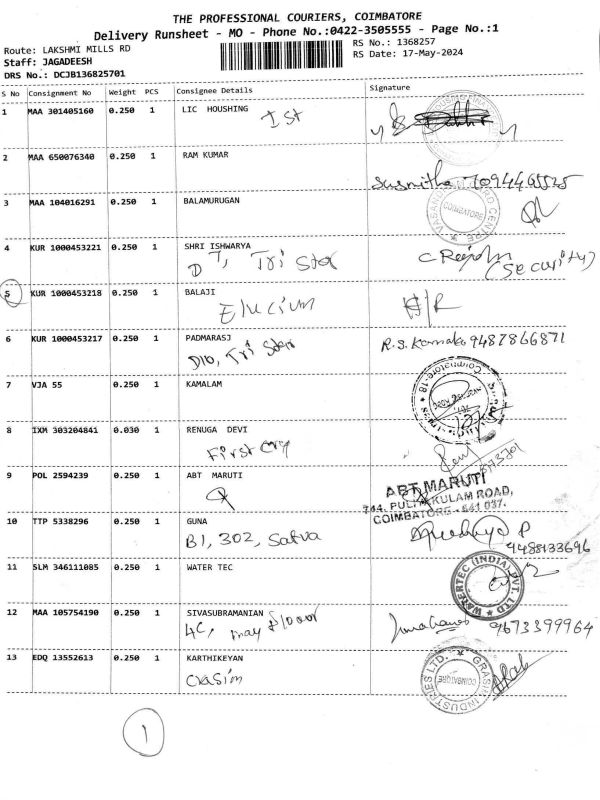 THE PROFESSIONAL COURIERS, COIMBATORE
Delivery Runsheet - MO - Phone No.:0422-3505555 - Page No.:1
Route: LAKSHMI MILLS RD
RS No.: 1368257
Staff: JAGADEESH
RS Date: 17-May-2024
DRS No.: DCJB136825701
S No Consignment No Weight PCS Consignee Details Signature
1 MAA 301405160 0.250 1 LIC HOUSHING
Ist
2 MAA 650076340 0.250 1 RAM KUMAR
Susmitha
3 MAA 104016291 0.250 1 BALAMURUGAN
COIMBATORE
4 KUR 1000453221 0.250 1 SHRI ISHWARYA
D 7, Tri Star
(Security)
5 KUR 1000453218 0.250 1 BALAJI
Elucium
H/R
6 KUR 1000453217 0.250 1 PADMARASJ
D10, Tri Star
9487866871
7 VJA 55 0.250 1 KAMALAM
Coimbatore-18
8 IXM 303204841 0.030 1 RENUGA DEVI
First cry
9 POL 2594239 0.250 1 ABT MARUTI
ABT MARUTI
744, PULIAKULAM ROAD,
COIMBATORE - 641 037.
10 TTP 5338296 0.250 1 GUNA
B1, 302, Satva
9488133696
11 SLM 346111085 0.250 1 WATER TEC
WATERTEC (INDIA) PVT. LTD
12 MAA 105754190 0.250 1 SIVASUBRAMANIAN
4C, may flower
9673399964
13 EDQ 13552613 0.250 1 KARTHIKEYAN
Grasim
GRASIM INDUSTRIES LTD.
COIMBATORE
1